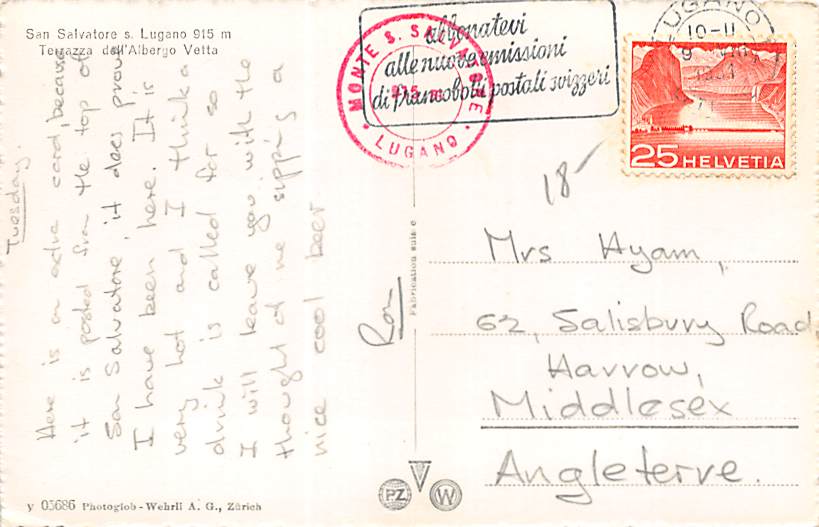 San Salvatore s. Lugano 915 m
Terrazza dell'Albergo Vetta
Tuesday.
Here is an extra card, because
it is posted from the top of
San Salvatore, it does prove
I have been here. It is
very hot and I think a
drink is called for so
I will leave you with the
thought of me sipping a
nice cool beer
Ron
y 05686 Photoglob-Wehrli A. G., Zürich
Fabrication suisse
MONTE S. SALVATORE
LUGANO
abbonatevi
alle nuove emissioni
di francobolli postali svizzeri
LUGANO 1
10-11
25 HELVETIA
18-
Mrs Hyam,
62, Salisbury Road
Harrow,
Middlesex
Angleterre.
PZ
W